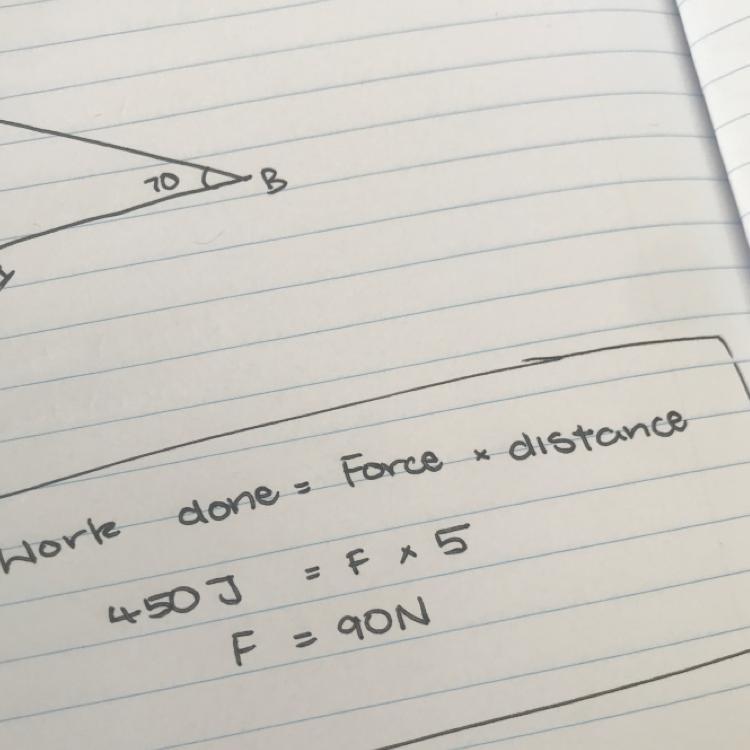 70 B
Work done = Force × distance
450 J = F × 5
F = 90N